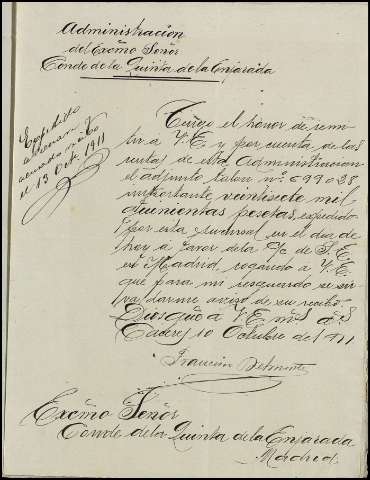 Administración
del Excmo Señor
Conde de la Quinta de la Enjarada
Expedido
abonaré y
acusado recibo
el 13 Oct. 1911
Tengo el honor de remi
tir a V. E. y por cuenta de las
rentas de esta Administracion
el adjunto talon nº 099028
importante veintisiete mil
quinientas pesetas, expedido
por esta sucursal en el dia de
hoy a favor de la c/c de S. E.
en Madrid, rogando a V. E.
que para mi resguardo se sir
va darme aviso de su recibo
Dios gue a V. E. ms as
Caceres 10 Octubre de 1911
Excmo Señor
Conde de la Quinta de la Enjarada
Madrid